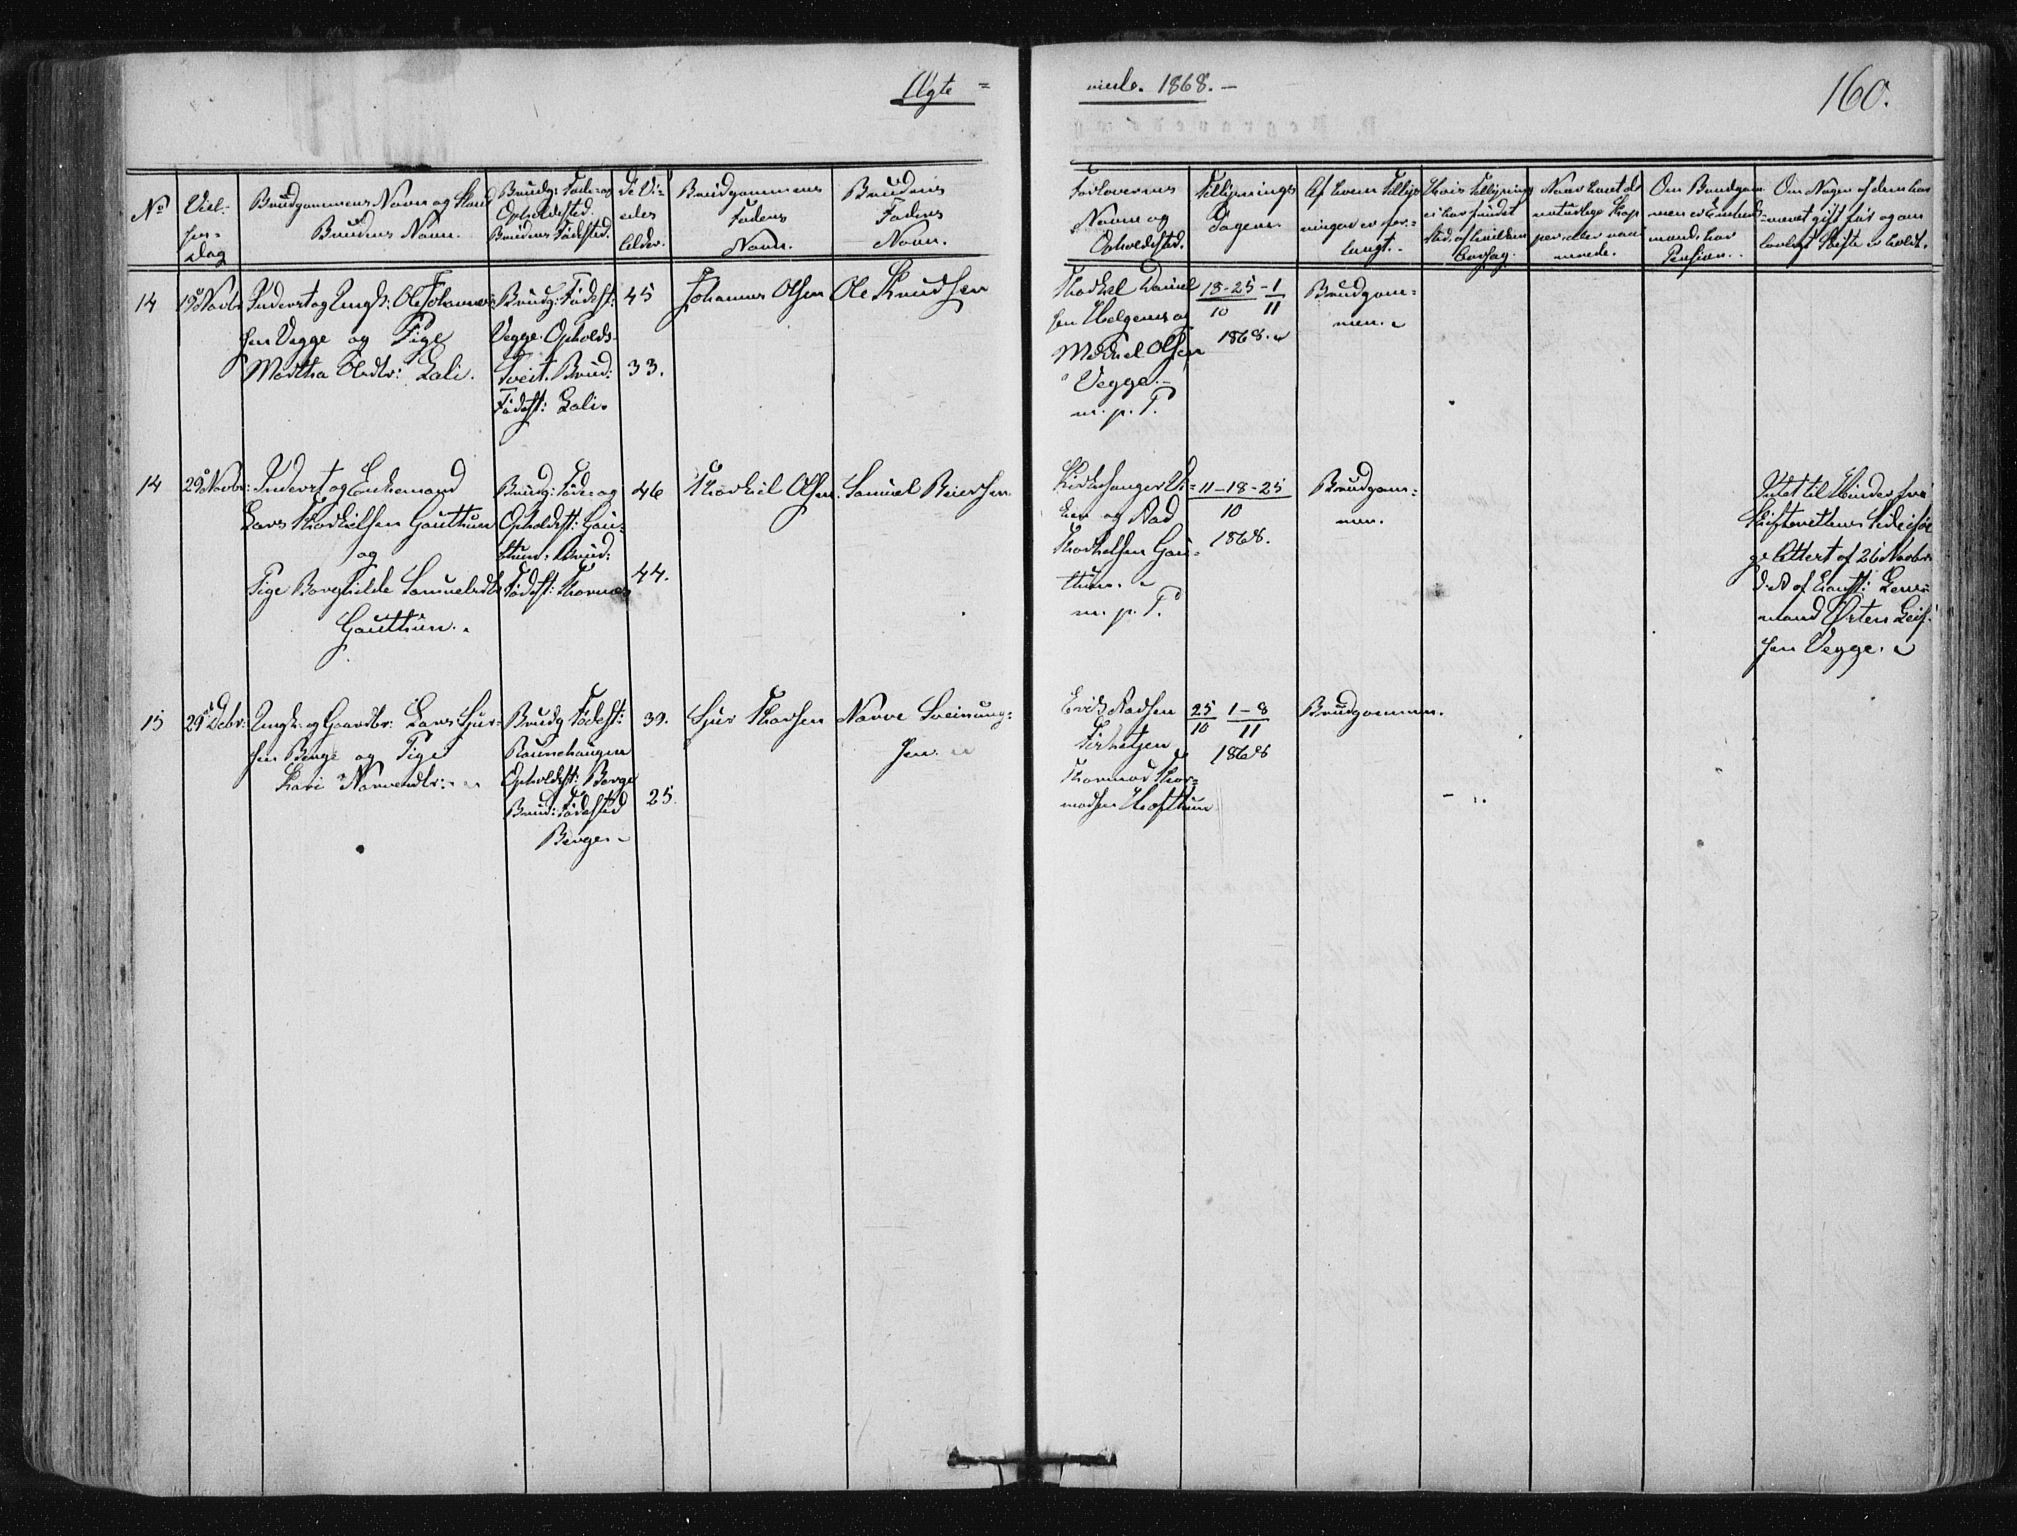 Ægte =
viede. 1868. –
160.
No
Viel-
sen-
Dag
Brudgommens Navn og Stand
Brudens Navn.
Brudg: Føde- og
Opholdsted.
Brudens Fødested.
de Vi-
edes
Alder.
Brudgommens
Faders
Navn.
Brudens
Faders
Navn.
Forlovernes
Navne og
Opholdsted.
Tillysnings
Dagene.
Af hvem Tillys
ningen er for-
langt.
Hvis Tillysning
ei har fundet
Sted, af hvilken
Aarsag.
naturlige Kop
per eller vacci
nerede.
Om Brudgom
men er
mand, har
Pension.
Om Nogen af dem har
været gift før og om
lovligt Skifte er holdt.
14
Novbr
Inderst og Ungk: Ole Johannes
sen Vegge og Pige
Martha Olsdtr: Lali.
Brudg: Fødest:
Vegge. Opholds
Tveit. Brud:
Fødest: Lali.
45
33.
Johannes Olsen
Ole Knudsen
Thorkel Daniel
sen Helgenes og
Mikkel Olsen
Vegge. –
m. p. P.
18-25-1
10 11
1868.
Brudgom=
men.
14
29 Novbr:
Inderst og Enkemand
Lars Thorkielsen Gauthun
og
Pige Borghilde Samuelsdtr
Gauthun.
Brudg: Føde og
Opholdst: Gau-
thun. Brud:
Fødest: Thornæs
46
44.
Thorkiel Olsen.
Samuel Reiersen
Kirkesanger
og Aad
Thorkelsen Gau-
thun.
m. p. P.
11-18-25
10
1868.
Brudgom=
men.
Intet til Hinder fra
Skifterettens Side iføl
ge Attest af 26 Novbr
d. A. af Const: Lens-
mand Orten Leif-
sen Vegge.
15
29 Decbr:
Ungk: og Gaardbr: Lars Sjur-
sen Berge og Pige
Kari Narvesdtr:
Brudg Fødest:
Raunehaugen
Opholdst: Berge
Brud: Fødested
Berge.
39.
25.
Sjur Thorsen
Narve Sveinung=
sen.
Erik Aadsen
Thormod Thor-
modsen Hofthun
25 1-8
10 11
1868
Brudgommen.